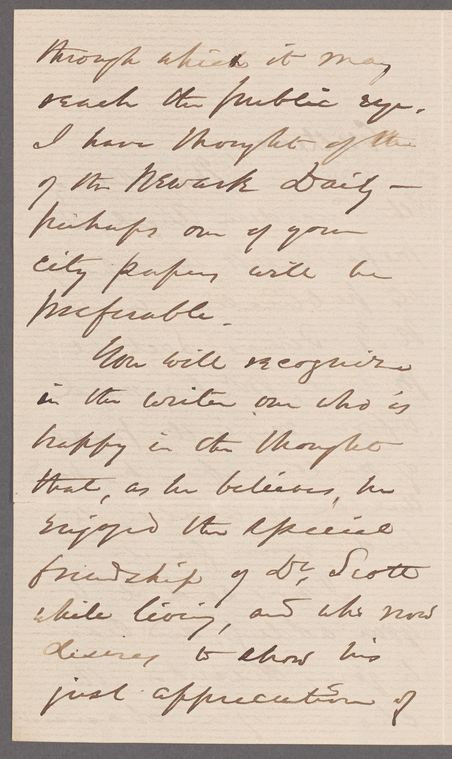 through which it may
reach the public eye.
I have thought of the
of the Newark Daily —
perhaps one of your
city papers will be
preferable.
You will recognize
in the writer one who is
happy in the thought
that, as he believes, he
enjoyed the special
friendship of Dr. Scott
while living, and who now
desires to show his
just appreciation of